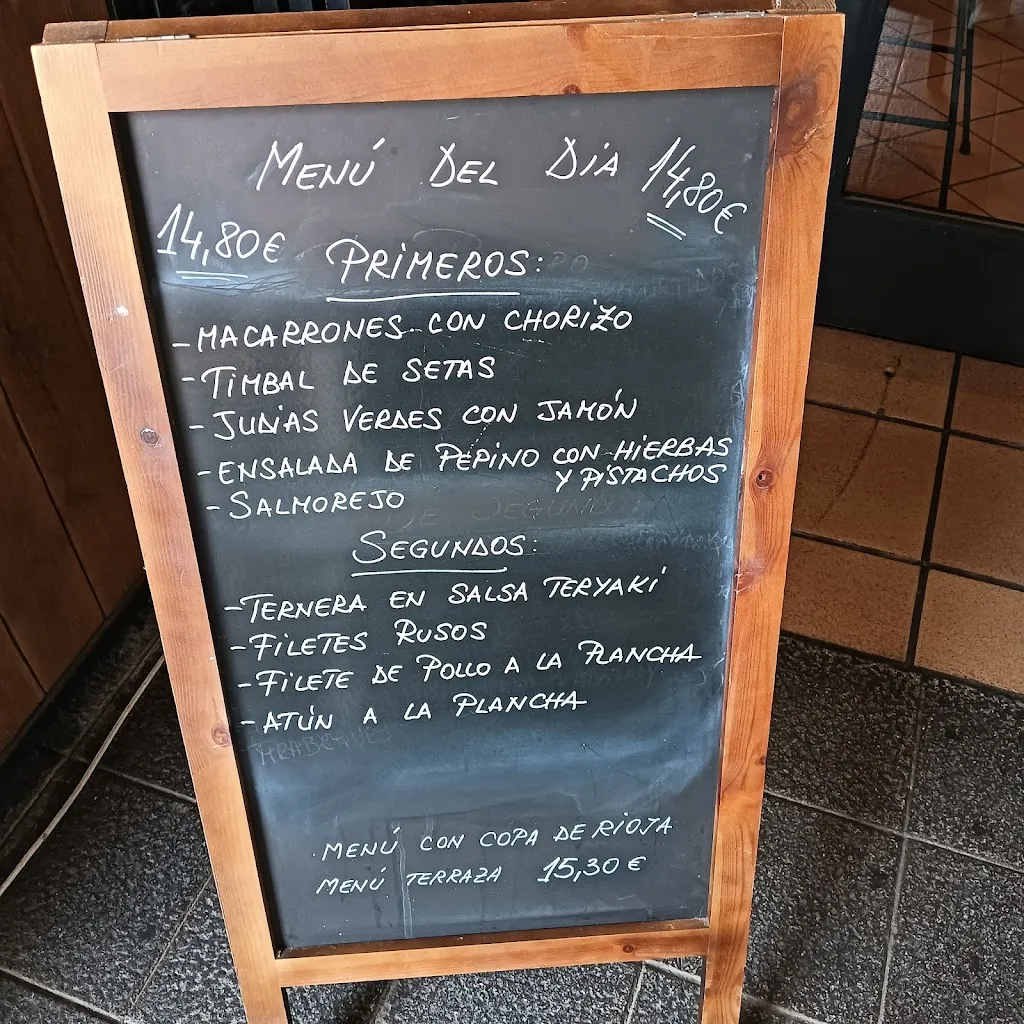 MENÚ DEL DIA 14,80€
14,80€
PRIMEROS:
- MACARRONES CON CHORIZO
- TIMBAL DE SETAS
- JUDIAS VERDES CON JAMÓN
- ENSALADA DE PEPINO CON HIERBAS
Y PISTACHOS
- SALMOREJO
SEGUNDOS:
- TERNERA EN SALSA TERYAKI
- FILETES RUSOS
- FILETE DE POLLO A LA PLANCHA
- ATÚN A LA PLANCHA
MENÚ CON COPA DE RIOJA
MENÚ TERRAZA 15,30€